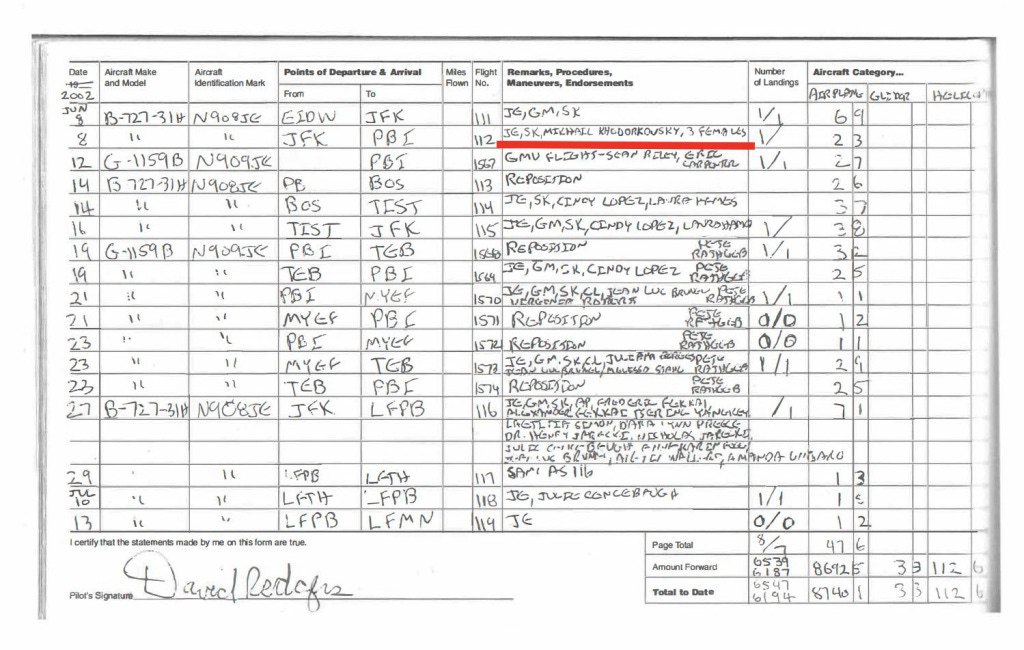 Date Aircraft Make Aircraft Points of Departure & Arrival Miles Flight Remarks, Procedures, Number Aircraft Category...
19 and Model Identification Mark Flown No. Maneuvers, Endorsements of Landings
2002 From To AIRPLANE GLIDER
JUN
8 B-727-31H N908JE EIDW JFK 111 JE, GM, SK 1/1 6 9
8 " " JFK PBI 112 JE, SK, MICHAIL KHODORKOVSKY, 3 FEMALES 1/ 2 3
12 G-1159B N909JE PBI 1567 GMU FLIGHT-SEAN RILEY, ERIC 1/1 2 7
CARPENTER
14 B 727-31H N908JE PB BOS 113 REPOSITION 2 6
14 " " BOS TIST 114 JE, SK, CINDY LOPEZ, 3 7
16 " " TIST JFK 115 JE, GM, SK, CINDY LOPEZ, 1/ 3 8
19 G-1159B N909JE PBI TEB REPOSITION PETE RATHGEB 1/1 3
19 " " TEB PBI 1569 JE, GM, SK, CINDY LOPEZ PETE RATHGEB 2 5
21 " " PBI MYEF 1570 JE, GM, SK, CL, JEAN LUC BRUNEL, PETE 1/1 1 1
RATHGEB
21 " " MYEF PBI 1571 REPOSITION PETE RATHGEB 0/0 1 2
23 " " PBI MYEF 1572 REPOSITION PETE RATHGEB 0/0 1 1
23 " " MYEF TEB 1573 JE, GM, SK, CL, PETE 1/1 2 9
JEAN LUC BRUNEL, RATHGEB
23 " " TEB PBI 1574 REPOSITION PETE RATHGEB 2 5
27 B-727-31H N908JE JFK LFPB 116 JE, GM, SK, AP, FREDERIC FEKKAI, /1 7 1
ALEXANDER FEKKAI
SIMON, DARA LYNN PREECE
DR. HENRY JARECKI, NICHOLAS JARECKI,
BRUNEL, AMANDA
29 " LFPB LFTH 117 SAME AS 116 1 3
JUL
10 " " LFTH LFPB 118 JE, JULIE 1/1 1
13 " " LFPB LFMN 119 JE 0/0 1 2
I certify that the statements made by me on this form are true. Page Total 8/7 47 6
Amount Forward 6539 6187 8692 5 3 3 112 6
Pilot's Signature David Rodgers Total to Date 6547 6194 8740 1 3 3 112 6